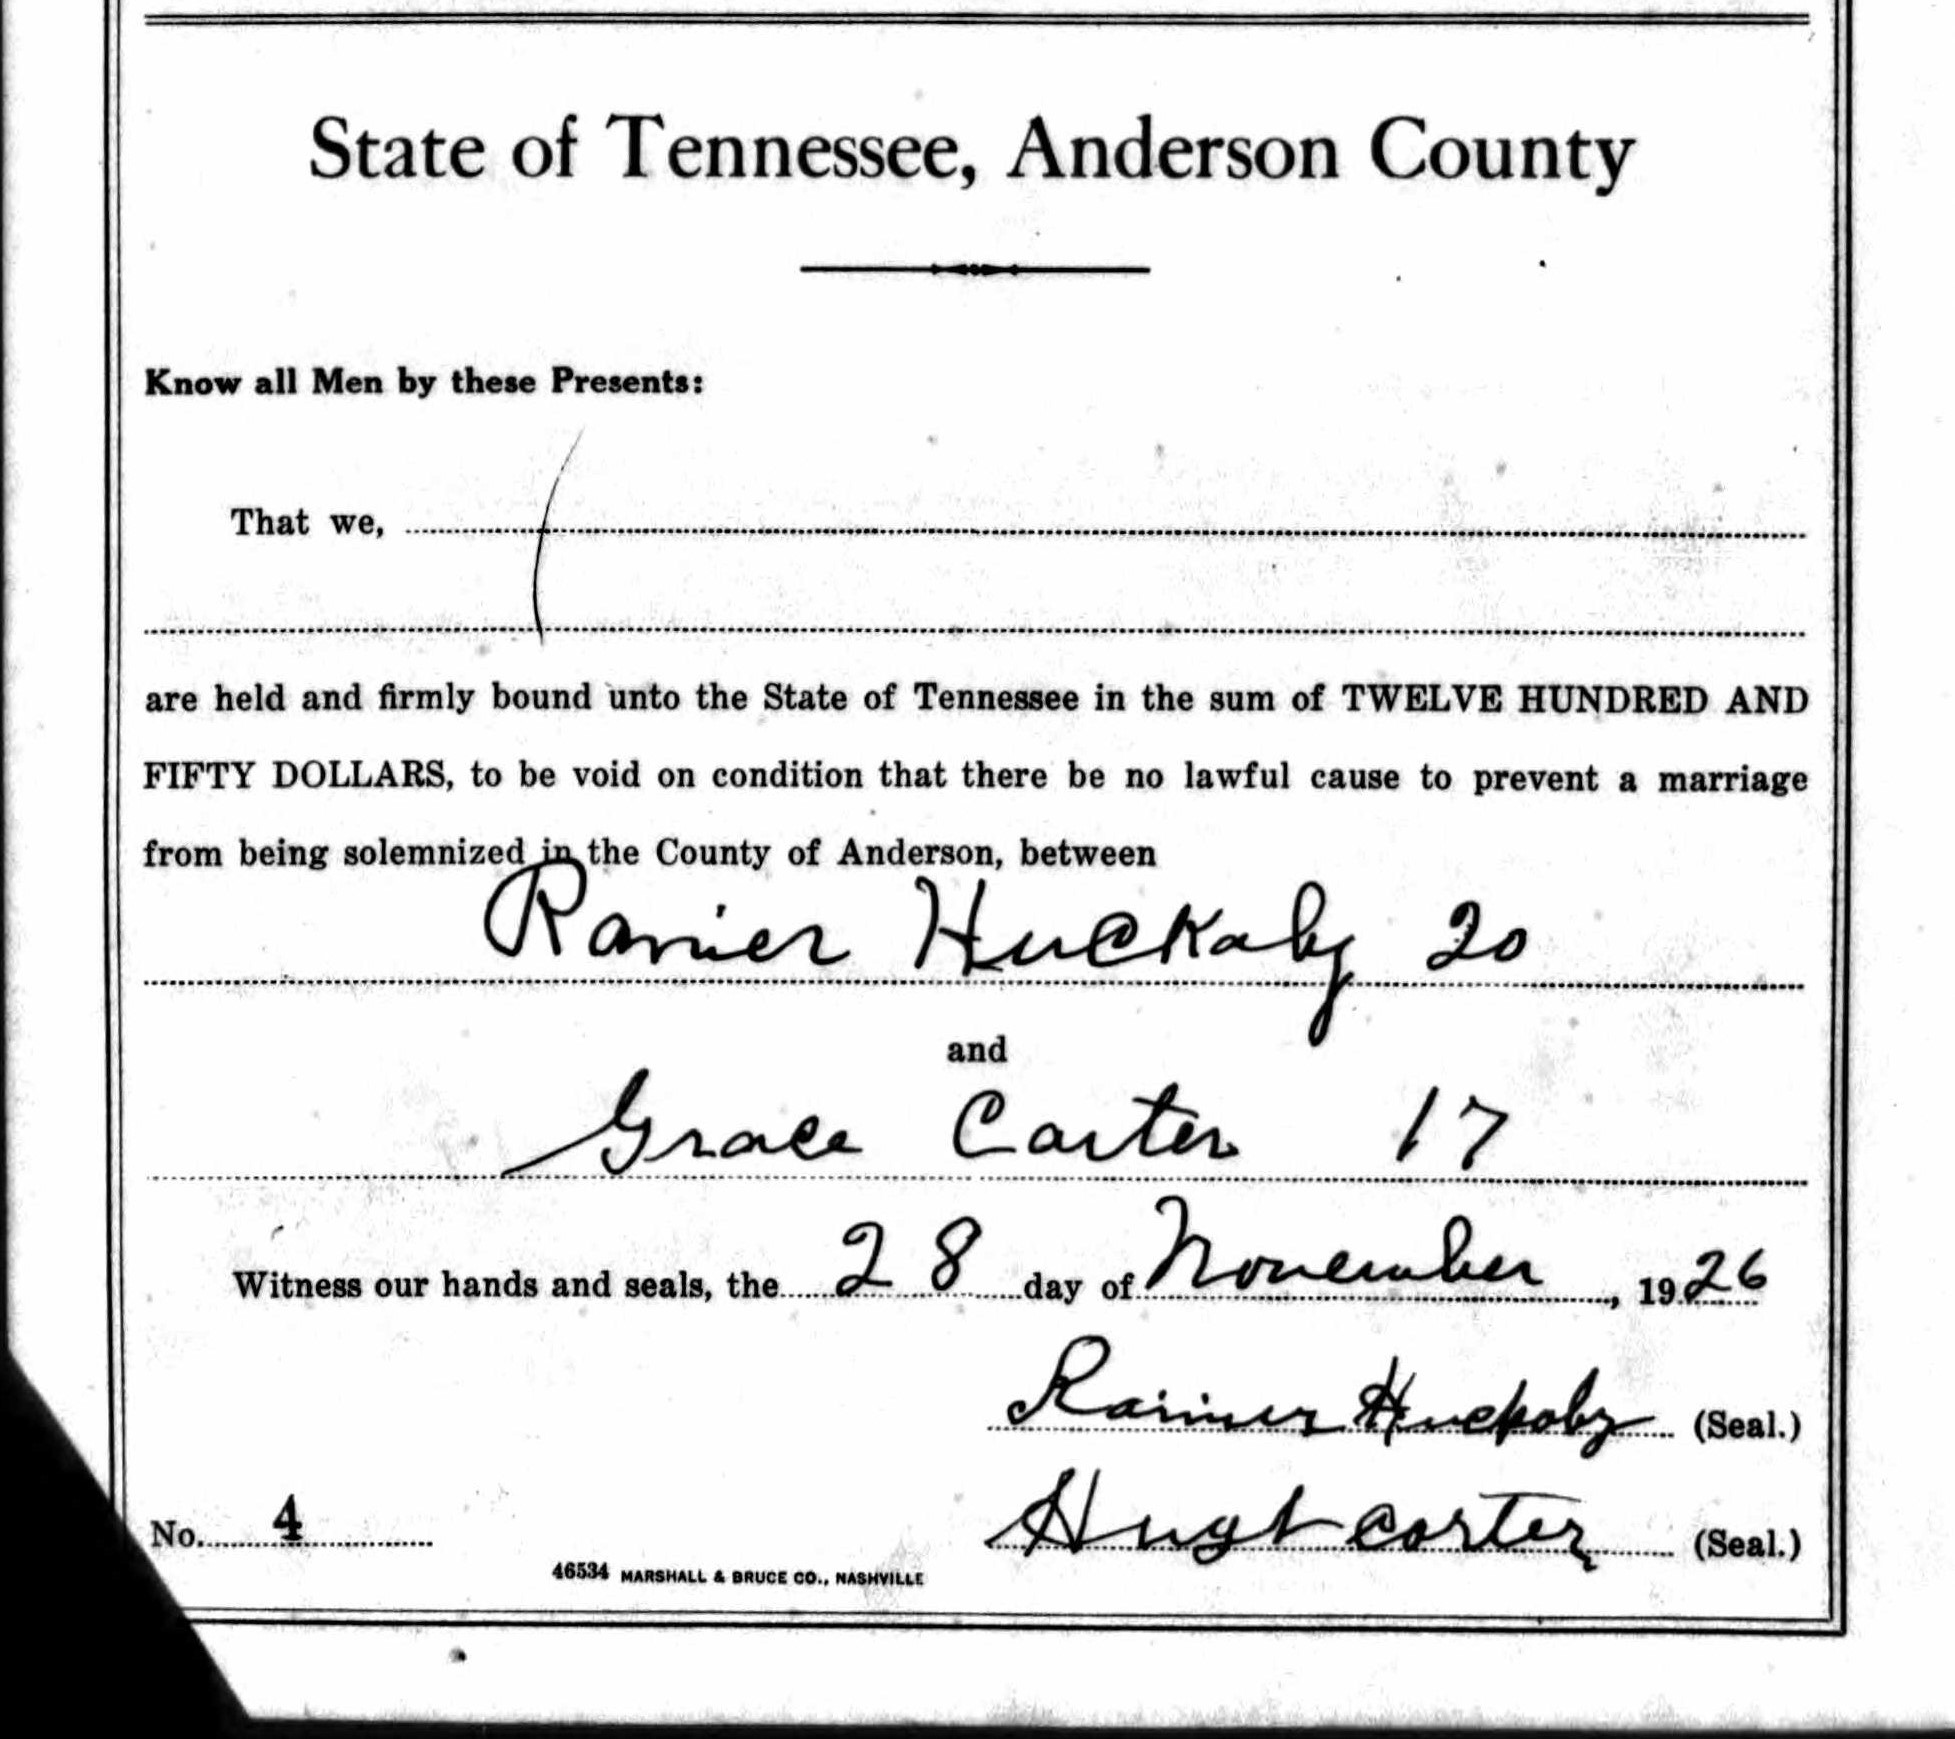 State of Tennessee, Anderson County
Know all Men by these Presents:
That we,
are held and firmly bound unto the State of Tennessee in the sum of TWELVE HUNDRED AND
FIFTY DOLLARS, to be void on condition that there be no lawful cause to prevent a marriage
from being solemnized in the County of Anderson, between
Ranier Huckaby 20
and
Grace Carter 17
Witness our hands and seals, the 28 day of November, 1926
Huckaby (Seal.)
Hugh Carter (Seal.)
No. 4
46534 MARSHALL & BRUCE CO., NASHVILLE